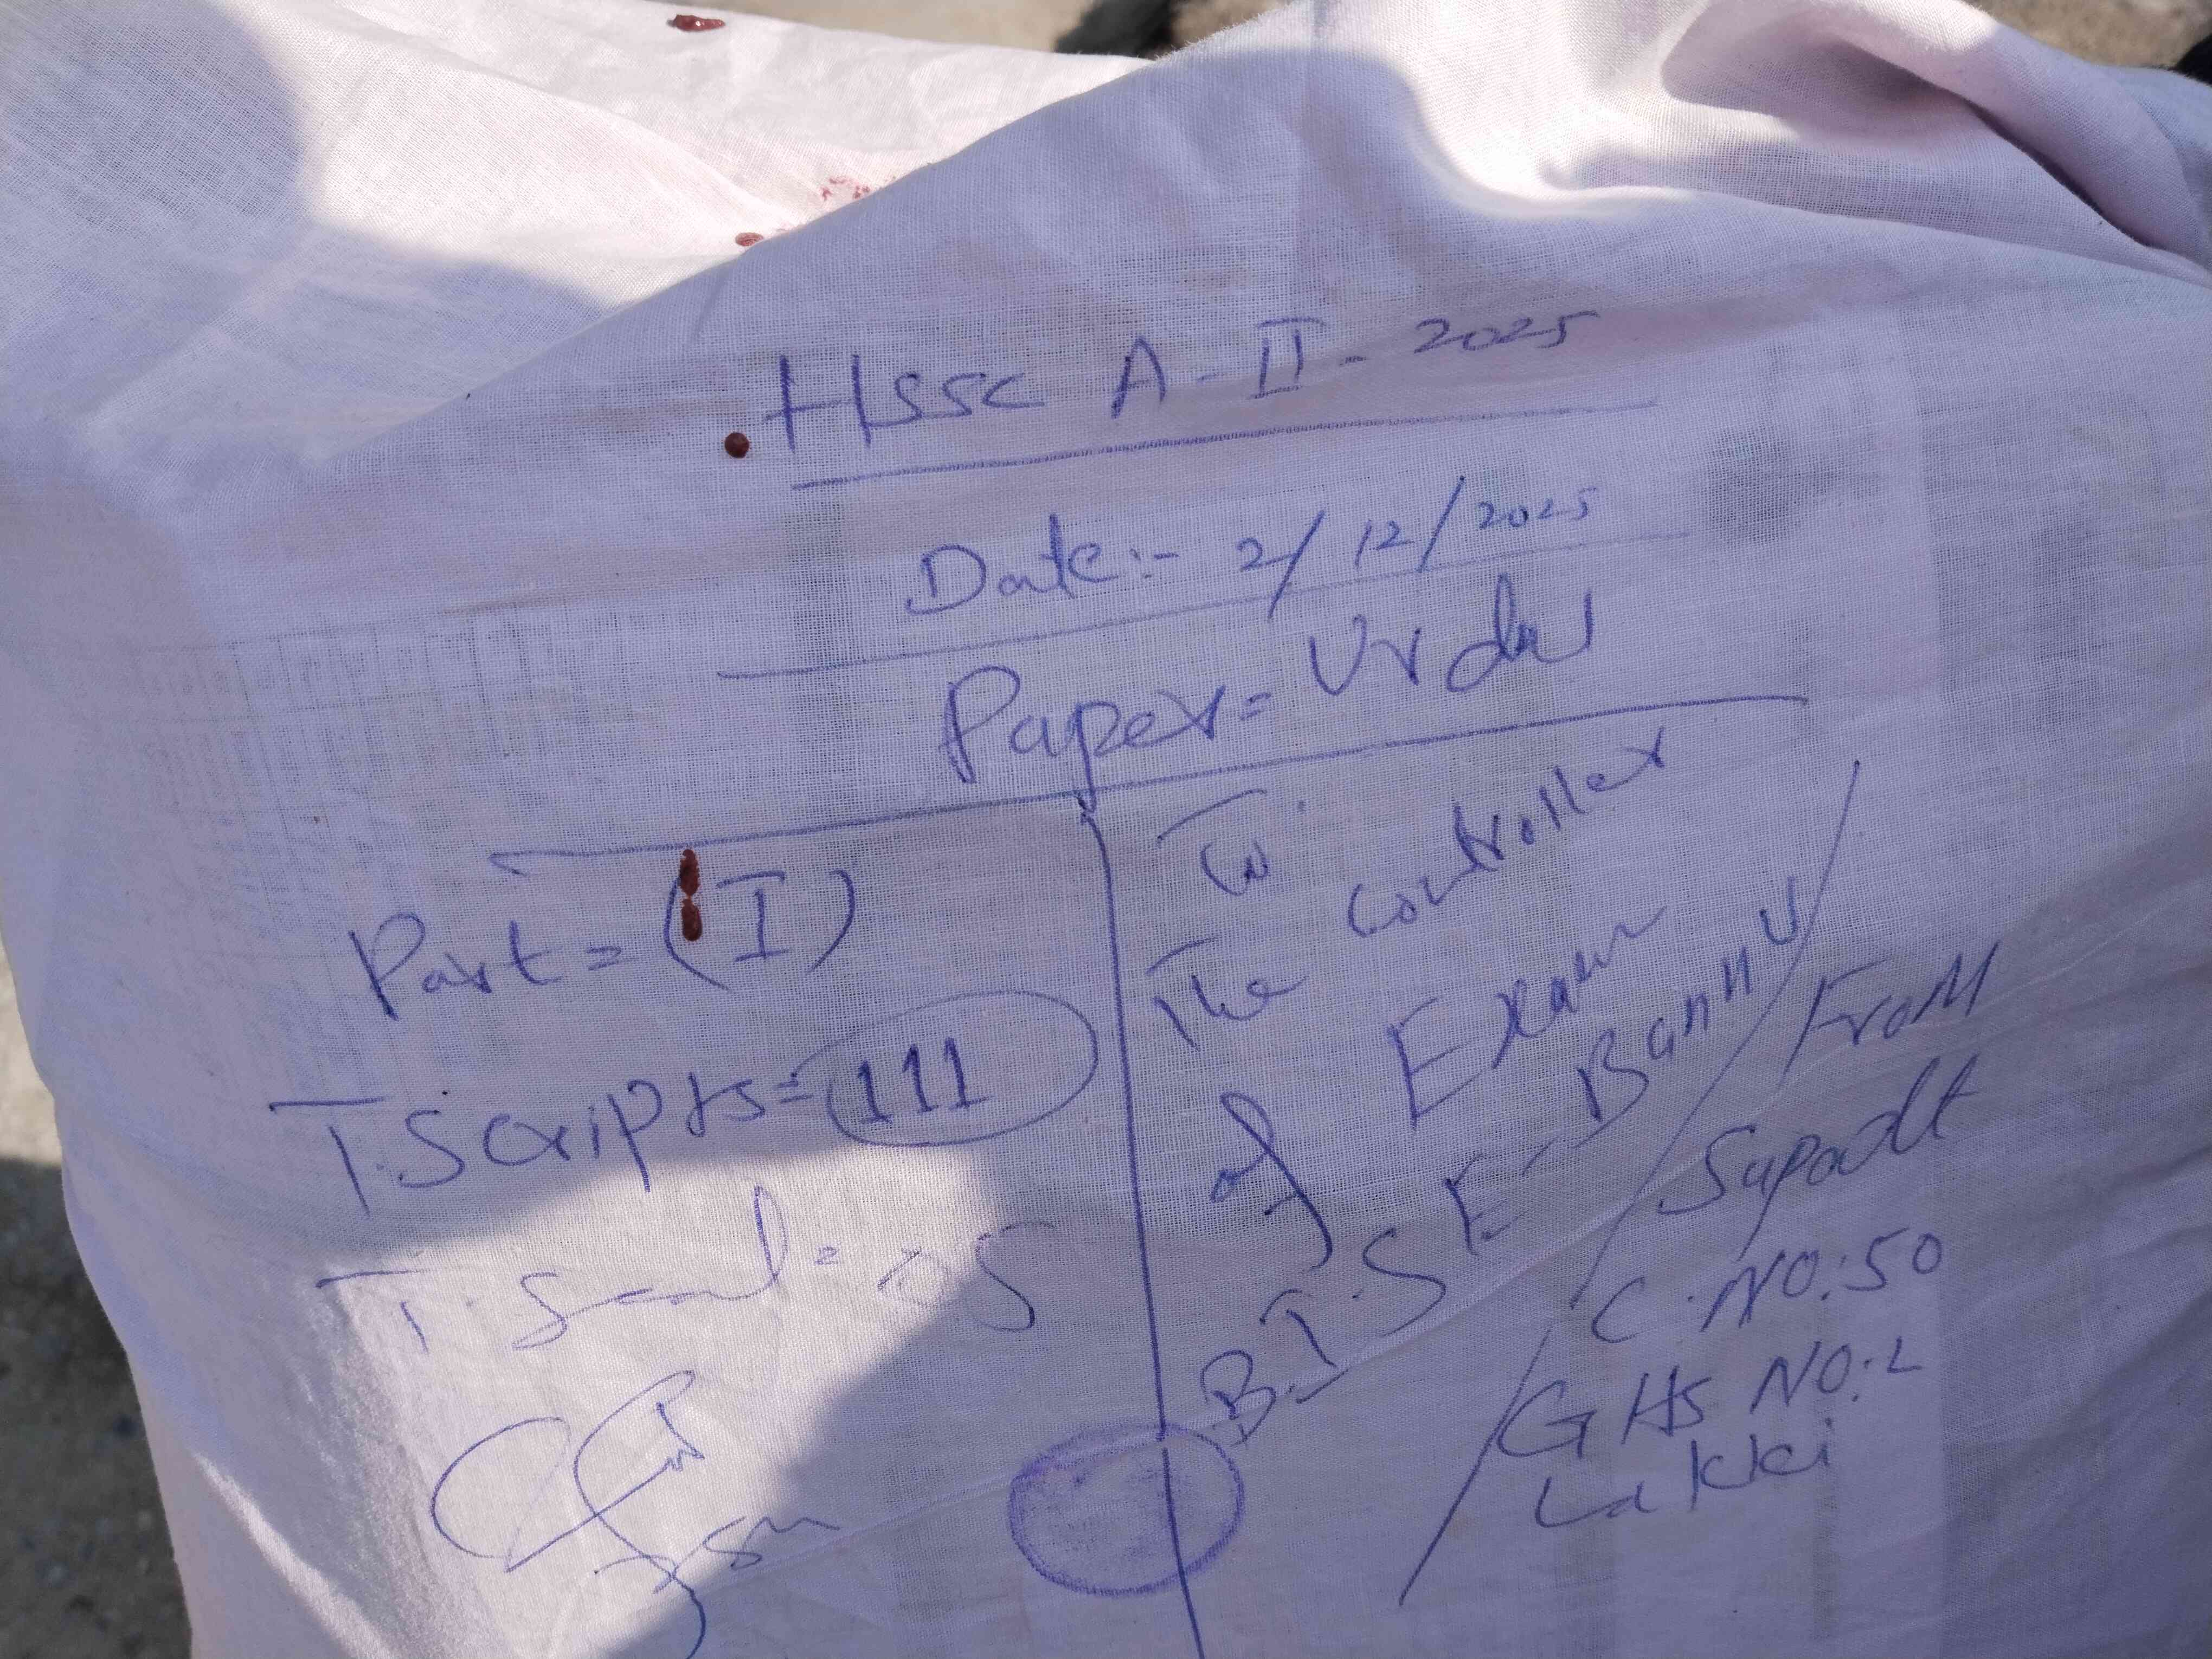 HSSC A-II-2025
Date:- 2/12/2025
Paper= Urdu
Part=(I)
T.Scripts= 111
T.Seal= 05
To
The Controller
of Exam
B.I.S.E- Bannu
From
Supdt
C.NO:50
GHS NO:2
Lakki